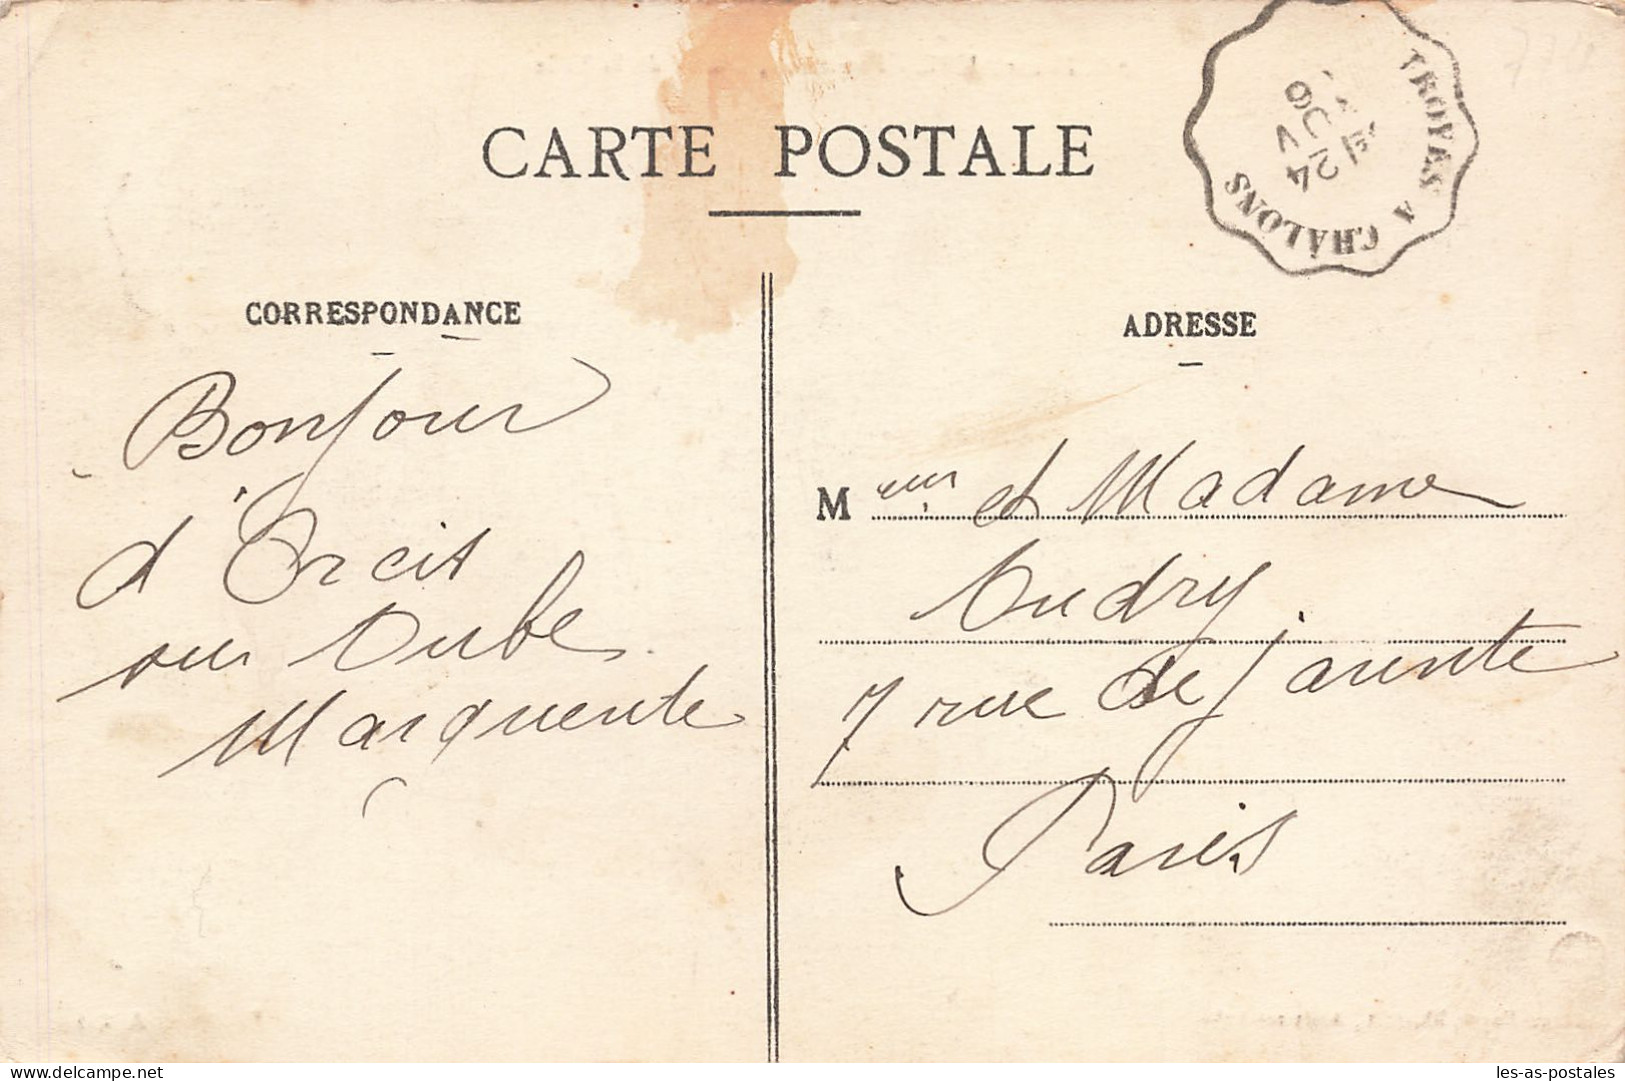 CARTE POSTALE
TROYES A CHÂLONS
24
06
CORRESPONDANCE
Bonjour
d'Orcit
sur Aube
Marguerite
ADRESSE
Meur et Madame
Audry
7 rue de Jarente
Paris
delcampe.net
les-as-postales